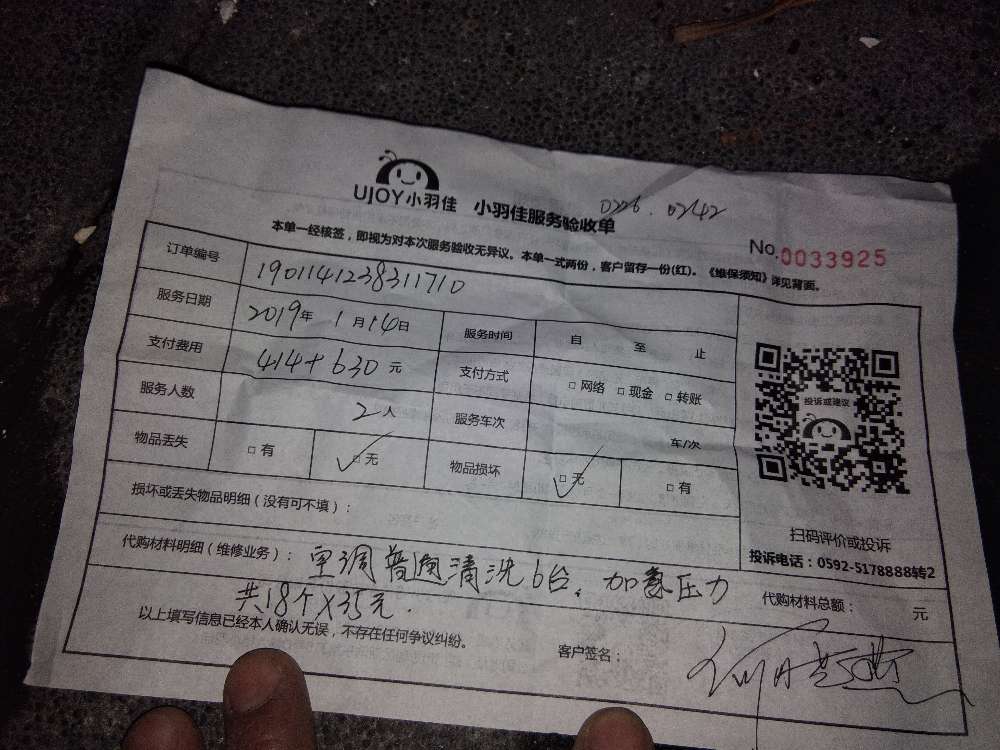 UJOY小羽佳 小羽佳服务验收单 0226.0242
No.0033925
本单一经核签，即视为对本次服务验收无异议。本单一式两份，客户留存一份(红)。《维保须知》详见背面。
订单编号 1901141238311710
服务日期 2019年 1月14日 服务时间 自 至 止
支付费用 414+630元 支付方式 □网络 □现金 □转账
服务人数 2人 服务车次 车/次
物品丢失 □有 □无 物品损坏 □无 □有
损坏或丢失物品明细（没有可不填）：
代购材料明细（维修业务）：空调普通清洗6台，加氟压力
共18个X35元.
代购材料总额： 元
以上填写信息已经本人确认无误，不存在任何争议纠纷。 客户签名：
投诉或建议
扫码评价或投诉
投诉电话：0592-5178888转2